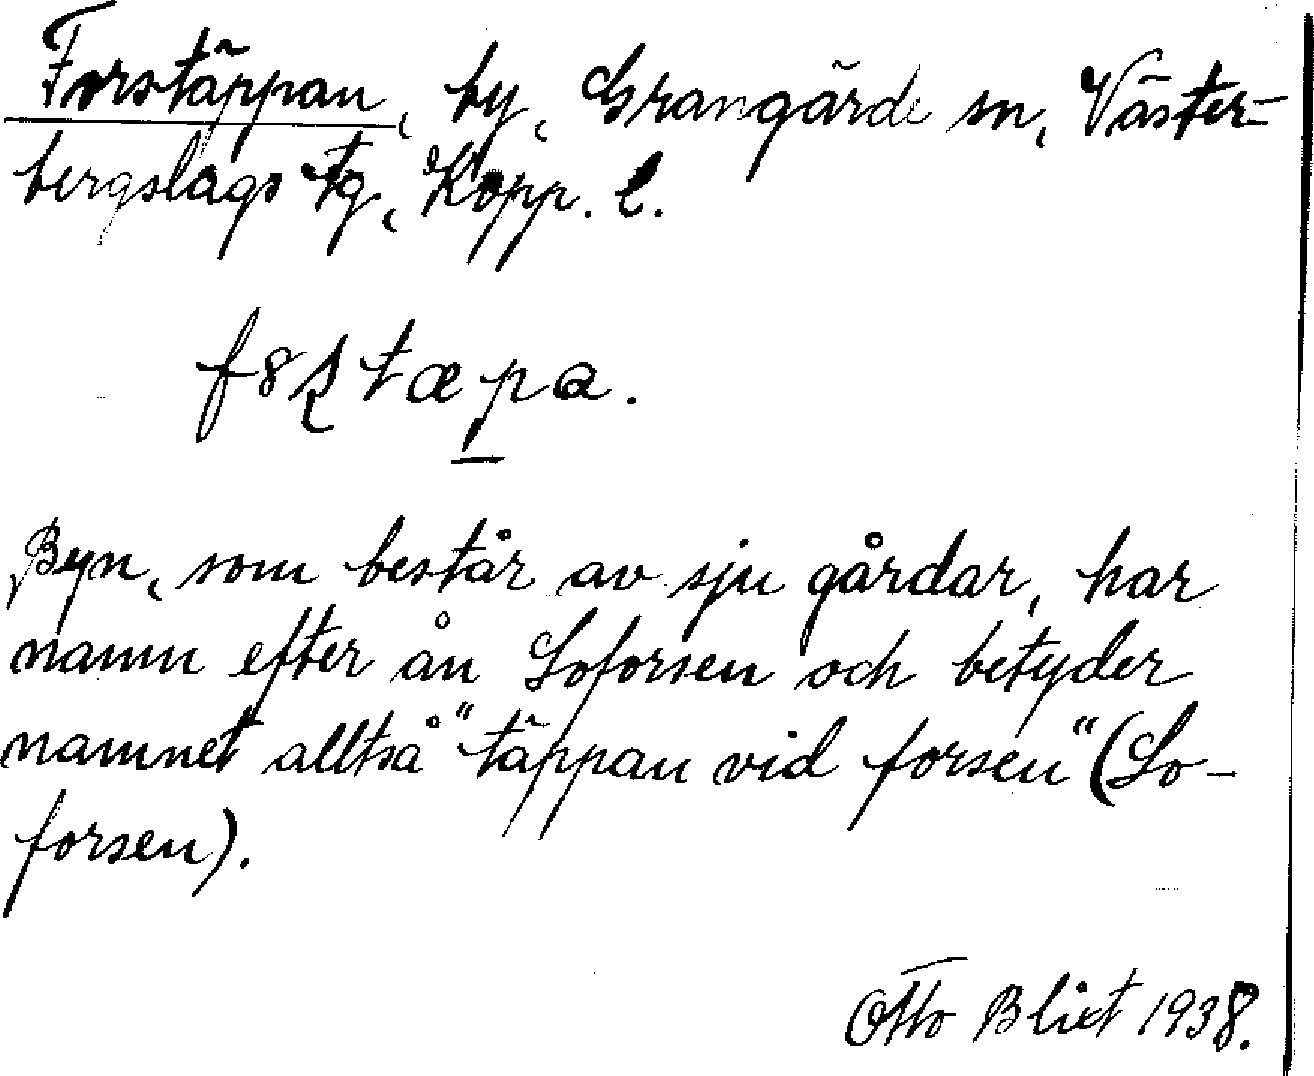 Forstäppan, by, Grangärde sn, Väster-
bergslags tg, Kopp. l.
Byn, som består av sju gårdar, har
namn efter ån Loforsen och betyder
namnet alltså "täppan vid forsen" (Lo-
forsen).
Otto Blixt 1938.